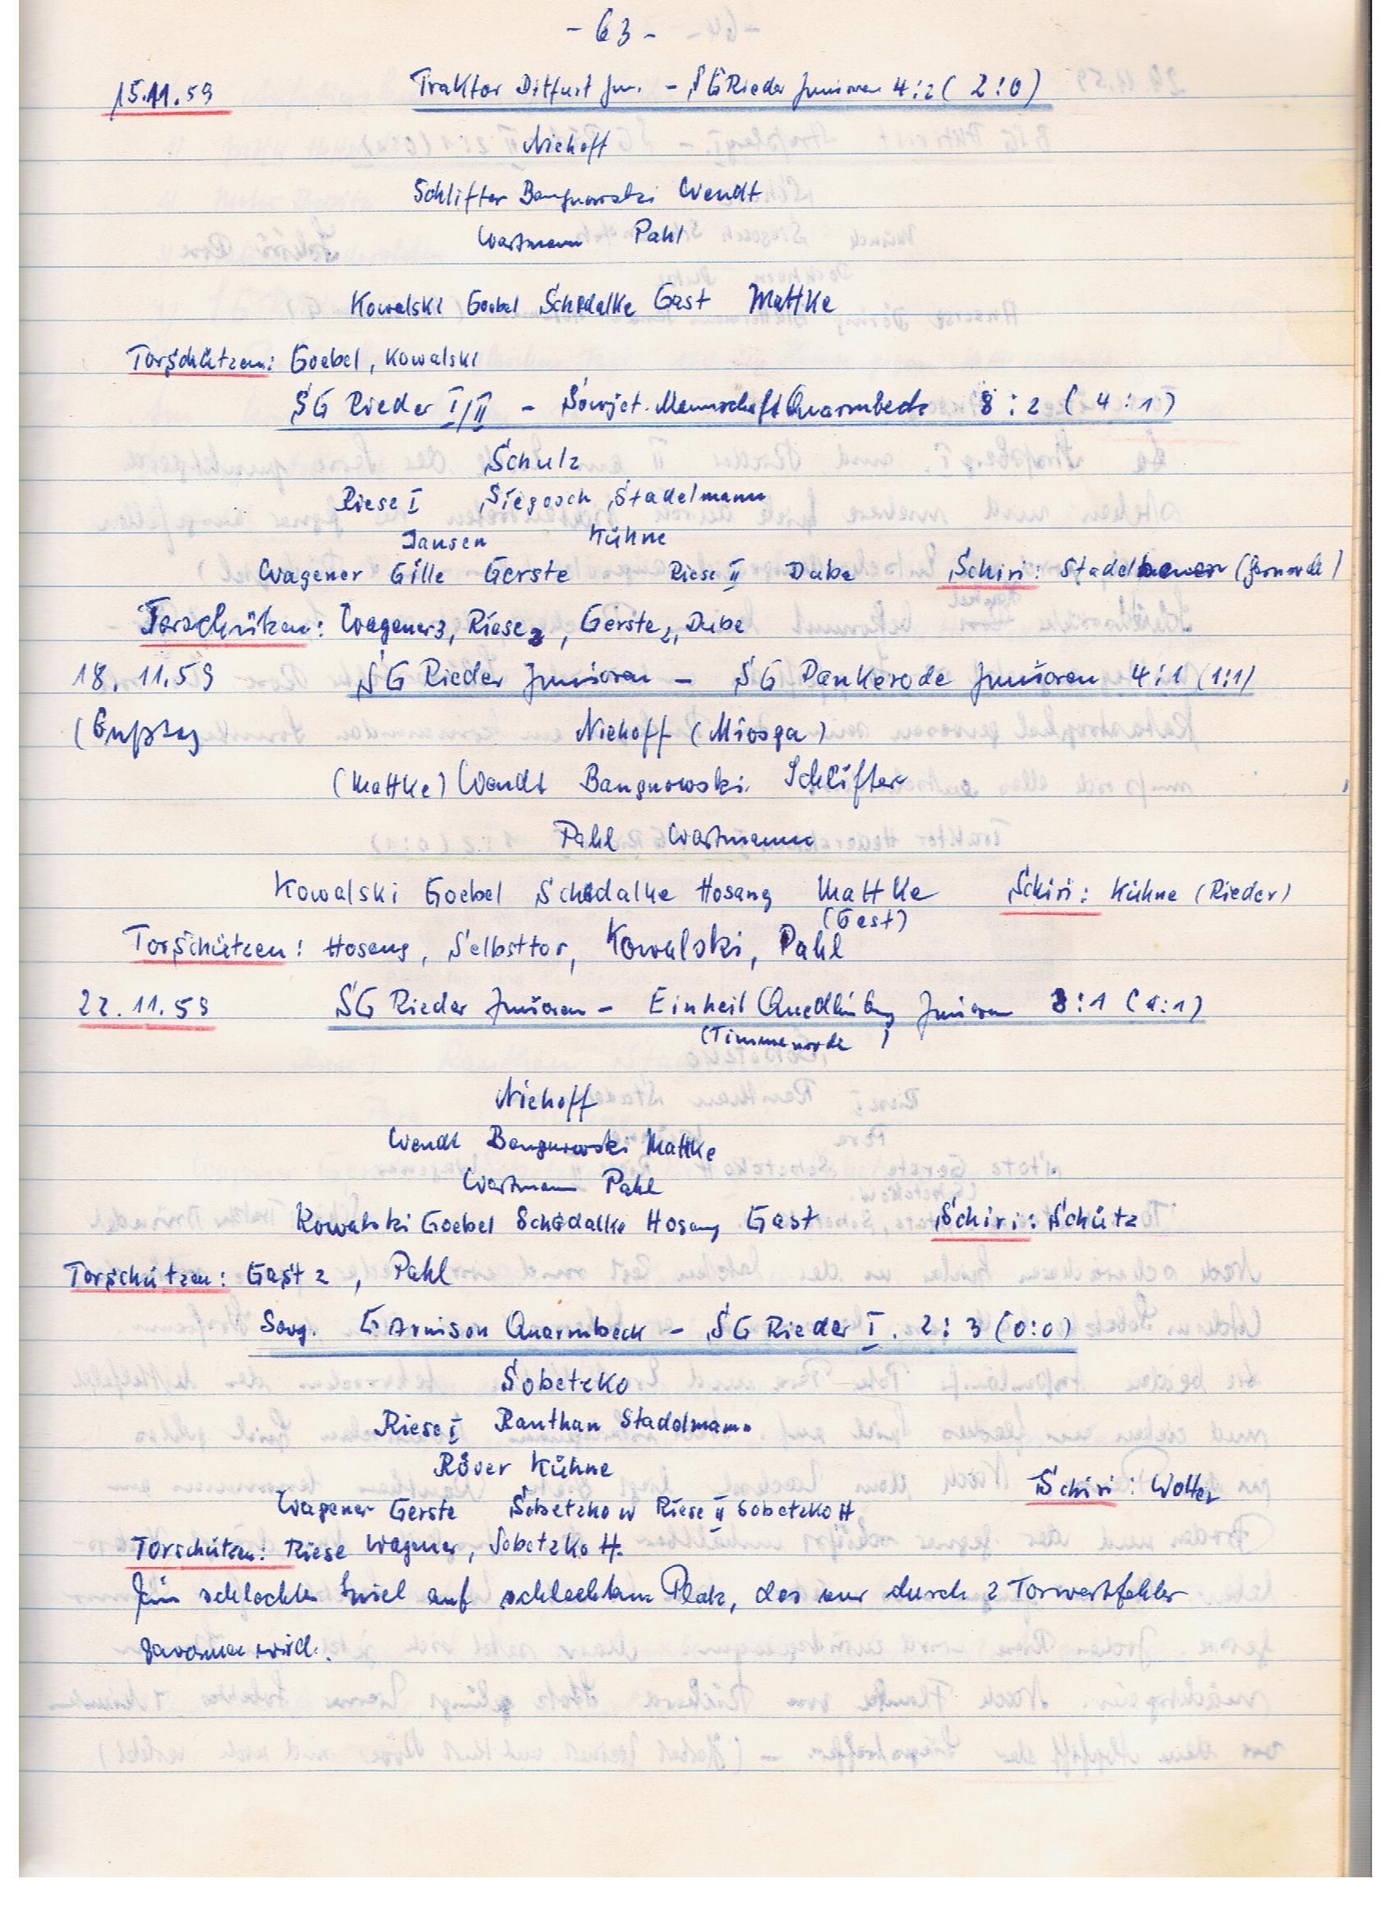 - 63 -
15.11.59 Traktor Ditfurt Jun. - SG Rieder Junioren 4:2 ( 2:0)
Niehoff
Schlifter Bangnowski Wendt
Wartmann Pahl
Kowalski Goebel Schidalke Gast Mattke
Torschützen: Goebel, Kowalski
SG Rieder I/II - Sowjet. Mannschaft Quarmbeck 8 : 2 ( 4 : 1)
Schulz
Riese I Siegosch Stadelmann
Jansen Kühne
Wagener Gille Gerste Riese II Dube Schiri: (Gernrode)
Torschützen: Wagener 3, Riese 2, Gerste 2, Dube
18. 11.59 SG Rieder Junioren - SG Pankerode Junioren 4:1 (1:1)
(Bußtag Niehoff (Miosga)
(Mattke) Wendt Bangnowski Schlifter
Pahl Wartmann
Kowalski Goebel Schidalke Hosang Mattke Schiri: Kühne (Rieder)
(Gast)
Torschützen: Hosang, Selbsttor, Kowalski, Pahl
22.11.59 SG Rieder Junioren - Einheit Quedlinburg Junioren 3:1 (1:1)
(Timmenrode)
Niehoff
Wendt Bangnowski Mattke
Wartmann Pahl
Kowalski Goebel Schidalke Hosang Gast Schiri: Schütz
Torschützen: Gast 2, Pahl
Sowj. Garnison Quarmbeck - SG Rieder I. 2:3 (0:0)
Sobetzko
Riese I Ranthan Stadelmann
Röver Kühne
Wagener Gerste Sobetzko W Riese II Sobetzko H Schiri: Wolter
Torschützen: Riese Wagener, Sobetzko H.
Ein schlechtes Spiel auf schlechtem Platz, das nur durch 2 Torwartfehler
gewonnen wird.